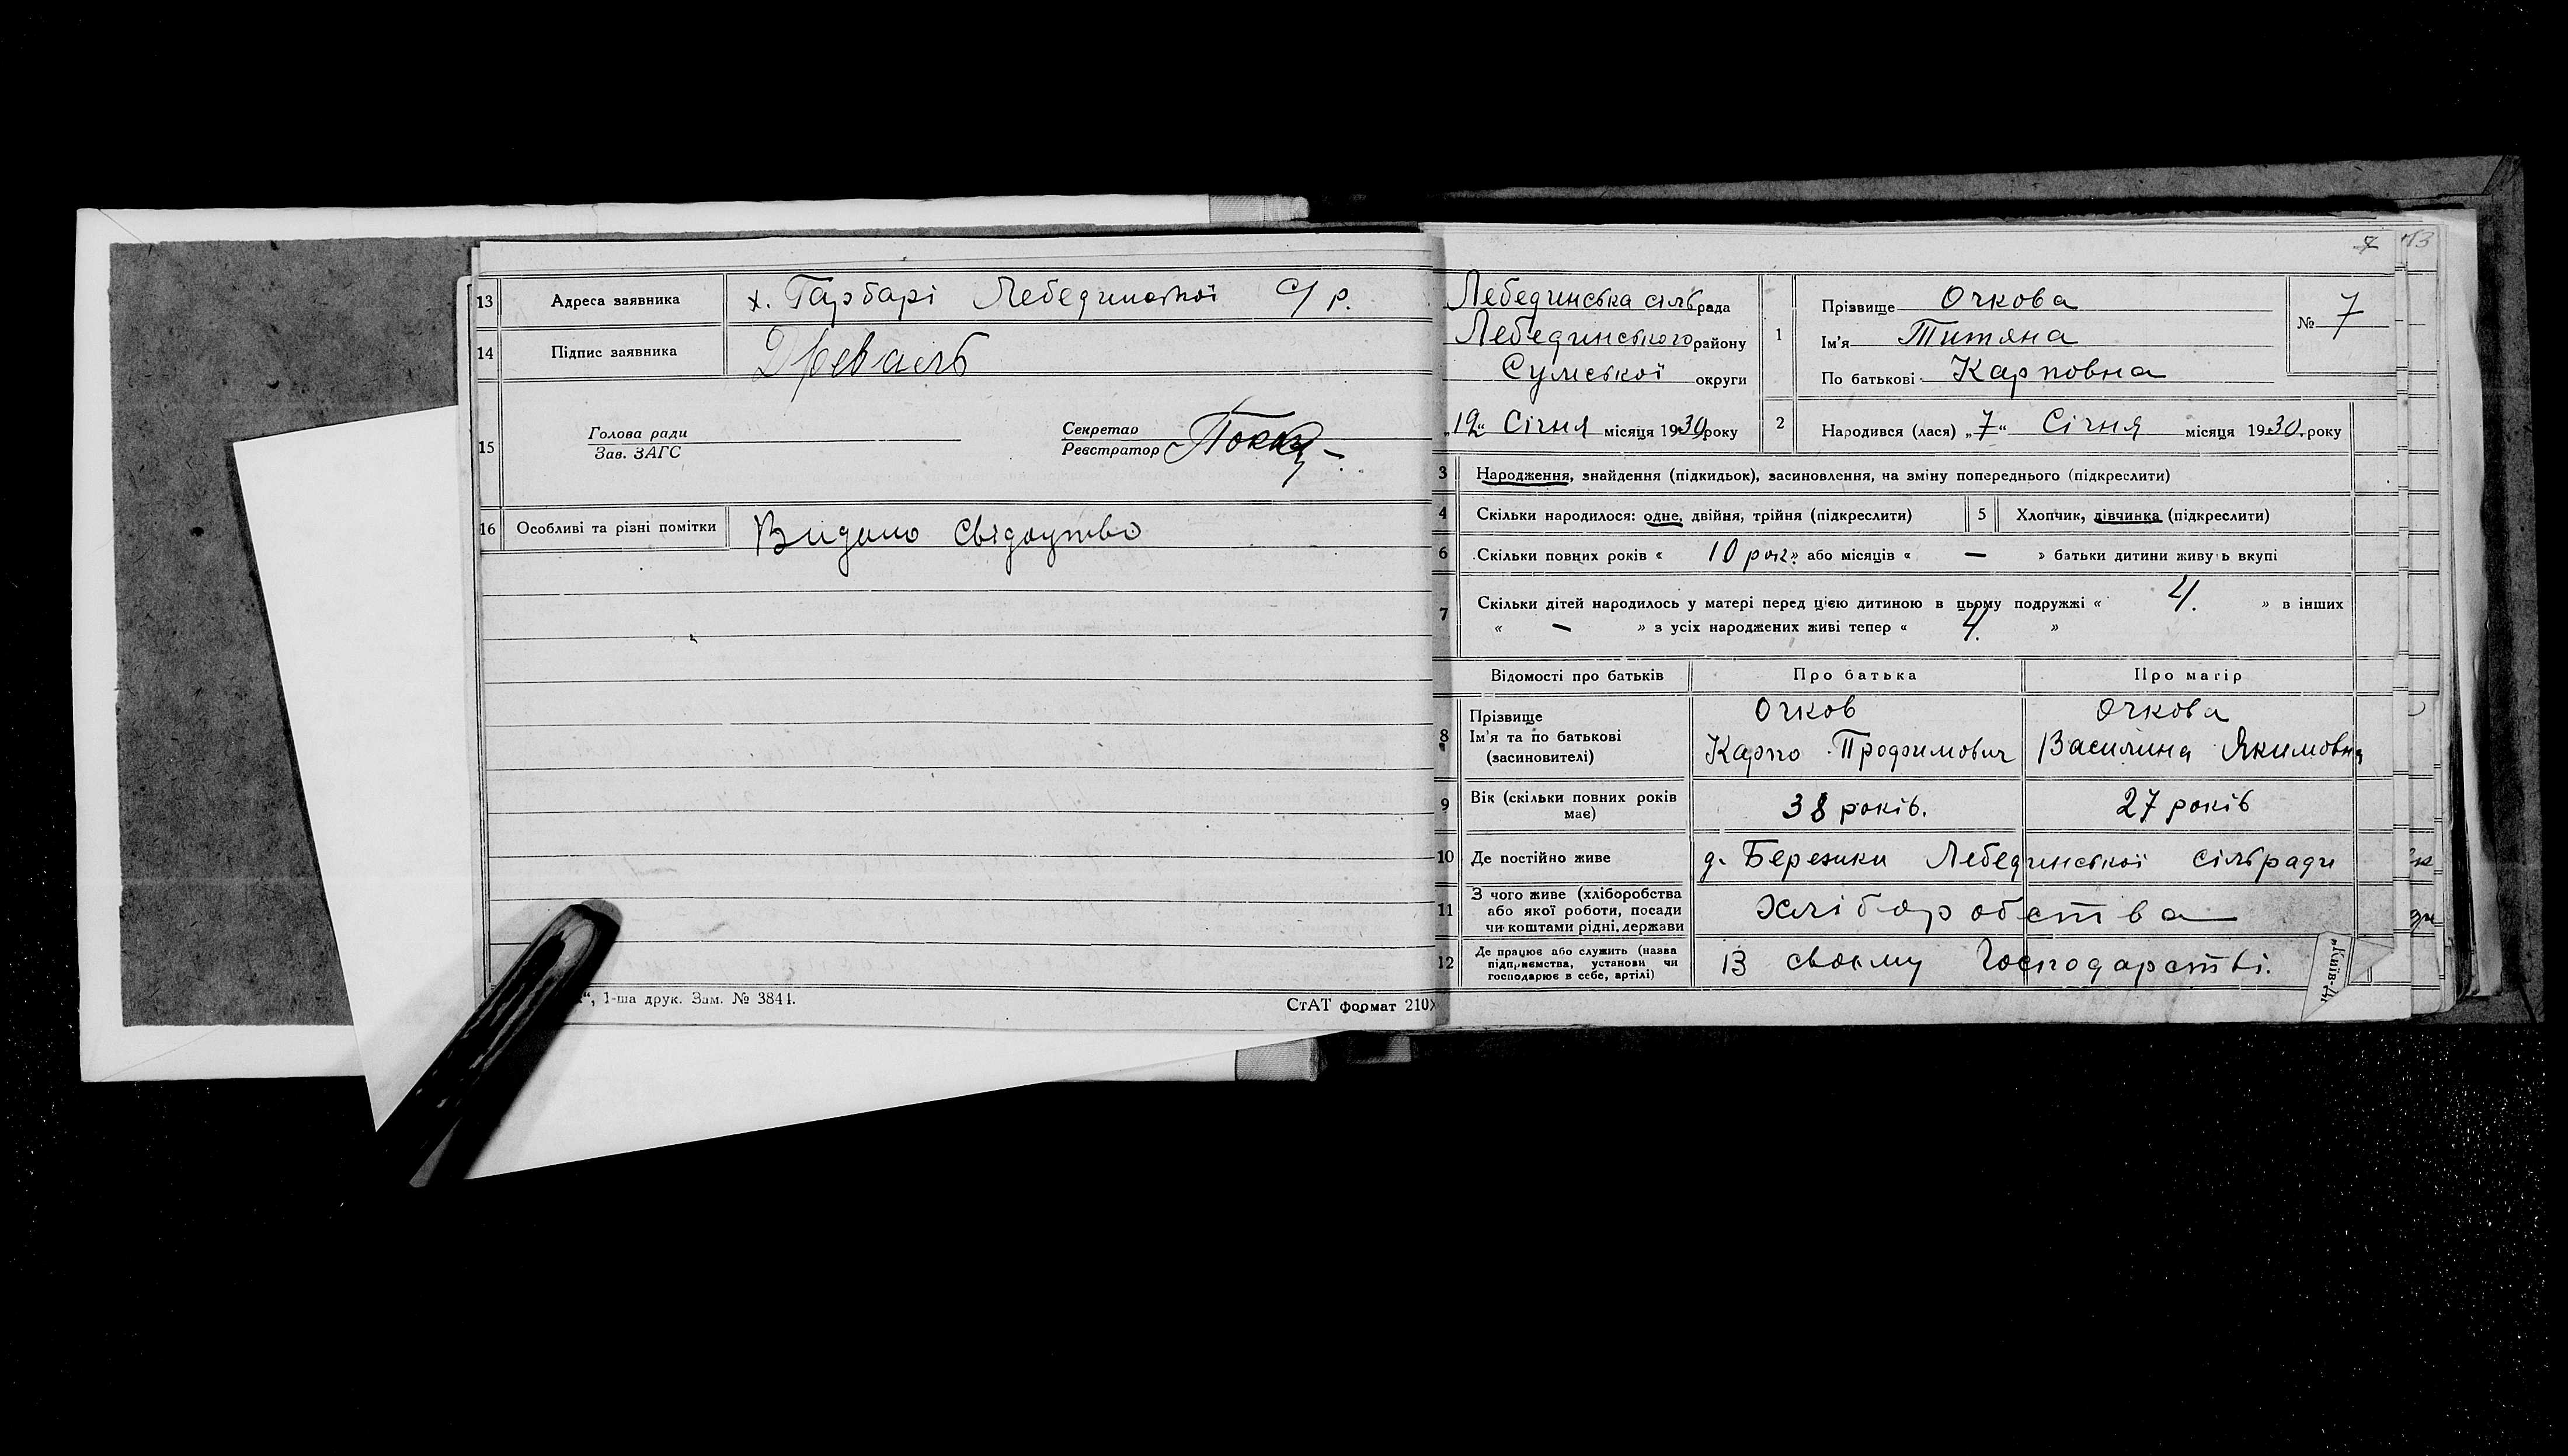 13 Адреса заявника х. Гарбарі Лебединської С/р.
14 Підпис заявника Древаль
15 Голова ради
Зав. ЗАГС
Секретар
Реєстратор
16 Особливі та різні помітки Видано Свідоцтво
1-ша друк. Зам. № 3844.
СтАТ формат 210
7
13
Лебединська сільрада
Лебединського району
Сумської округи
„12“ Січня місяця 1930 року
1 Прізвище Очкова
Ім'я Титяна
По батькові Карповна
№ 7
2 Народився (лася) „7“ Січня місяця 1930 року
3 Народження, знайдення (підкидьок), засиновлення, на зміну попереднього (підкреслити)
4 Скільки народилося: одне, двійня, трійня (підкреслити) 5 Хлопчик, дівчинка (підкреслити)
6 Скільки повних років « 10 рок. » або місяців « — » батьки дитини живуть вкупі
7 Скільки дітей народилось у матері перед цією дитиною в цьому подружжі « 4. » в інших
« — » з усіх народжених живі тепер « 4. »
Відомості про батьків Про батька Про матір
8 Прізвище Очков Очкова
Ім'я та по батькові Карпо Профимович Василина Якимовна
(засиновителі)
9 Вік (скільки повних років має) 38 років. 27 років
10 Де постійно живе д. Березики Лебединської сільради
11 З чого живе (хліборобства
або якої роботи, посади
чи коштами рідні, держави
хліборобства
12 Де працює або служить (назва
підприємства, установи чи
господарює в себе, артілі)
В своєму Господарстві.
„Київ-Д